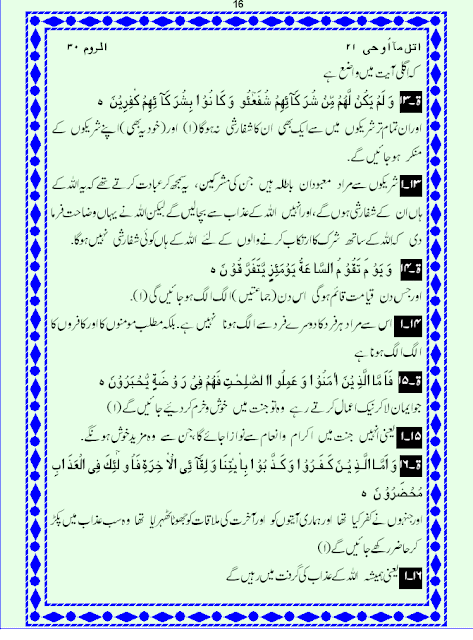 16
اتل ماأوحی ۲۱ الروم ۳۰
کہ اگلی آیت میں واضع ہے
ق۔۱۳ وَ لَمْ یَکُنْ لَّھُمْ مِّنْ شُرَ کَآئِھِمْ شُفَعٰٓئُو وَ کَا نُوْ ا بِشُرَ کَآ ئِھِمْ کٰفِرِیْنَ ہ
اور ان تمام تر شریکوں میں سے ایک بھی ان کا شفارشی نہ ہوگا (۱) اور (خود یہ بھی) اپنے شریکوں کے
منکر ہو جائیں گے۔
۱۳۔۱ شریکوں سے مراد معبودان باطلہ ہیں جن کی مشرکین، یہ سمجھ کر عبادت کرتے تھے کہ یہ اللہ کے
ہاں ان کے شفارشی ہوں گے، اور انہیں اللہ کے عذاب سے بچالیں گے لیکن اللہ نے یہاں وضاحت فرما
دی کہ اللہ کے ساتھ شرک کا ارتکاب کرنے والوں کے لئے اللہ کے ہاں کوئی شفارشی نہیں ہوگا۔
ق۔۱۴ وَ یَوْ مَ تَقُوْ مُ السَّا عَۃُ یَوْمَئِذٍ یَّتَفَرَّ قُوْ نَ ہ
اور جس دن قیامت قائم ہوگی اس دن (جماعتیں) الگ الگ ہو جائیں گی (۱)۔
۱۴۔۱ اس سے مراد ہر فرد کا دوسرے فرد سے الگ ہونا نہیں ہے۔ بلکہ مطلب مومنوں کا اور کافروں کا
الگ الگ ہونا ہے
ق۔۱۵ فَاَ مَّا الَّذِ یْنَ اٰ مَنُوْ ا وَ عَمِلُو ا ا لصّٰلِحٰتِ فَھُمْ فِیْ رَ وْ ضَۃٍ یُّحْبَرُوْنَ ہ
جو ایمان لا کر نیک اعمال کرتے رہے وہ تو جنت میں خوش و خرم کر دیئے جائیں گے (۱)
۱۵۔۱ یعنی انہیں جنت میں اکرام و انعام سے نوازا جائے گا، جن سے وہ مزید خوش ہونگے۔
ق۔۱۶ وَ اَ مَّا ا لَّذِ یْنَ کَفَرُ وْ ا وَ کَذَّ بُوْ ا بِاٰ یٰتِنَا وَ لِقَآ ئِ الْاٰ خِرَ ۃِ فَاُ و لٰٓئِکَ فِی الْعَذَابِ
مُحْضَرُوْ نَ ہ
اور جنہوں نے کفر کیا تھا اور ہماری آیتوں کو اور آخرت کی ملاقات کو جھوٹا ٹھہرایا تھا وہ سب عذاب میں پکڑ
کر حاضر رکھے جائیں گے (۱)
۱۶۔۱ یعنی ہمیشہ اللہ کے عذاب کی گرفت میں رہیں گے